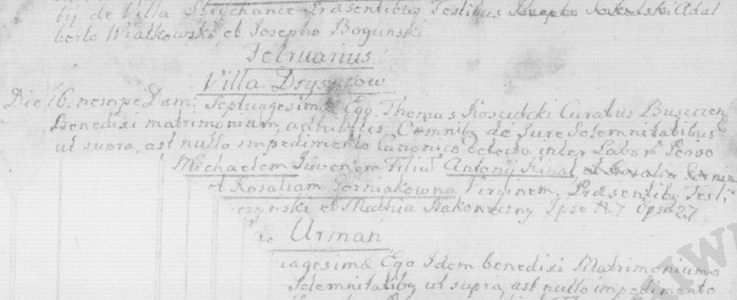 ty de Villa Strychance Præsentibus Testibus Adal
berto Wiatkowski et Josepho Boguński
Februarius
Villa Dryszczow
Die 16. nempe Dom: Septuagesimæ Ego Thomas Koszutski Curatus Buszczen
Benedixi matrimonium, adhibitis Omnibg de Jure Solemnitatibus
ut supra, ast nullo impedimento Canonico detecto inter Labor
Michaelem Juvenem Filiũ Antony
et Rosaliam Gorniakowna Virginem, Præsentibg Testi
czynski et Mathia Rakoneczny Ipse A. 7 Ipsa 27
Urman
uagesimæ Ego Idem benedixi Matrimonium
Solemnitatibg ut supra ast nullo impedimento